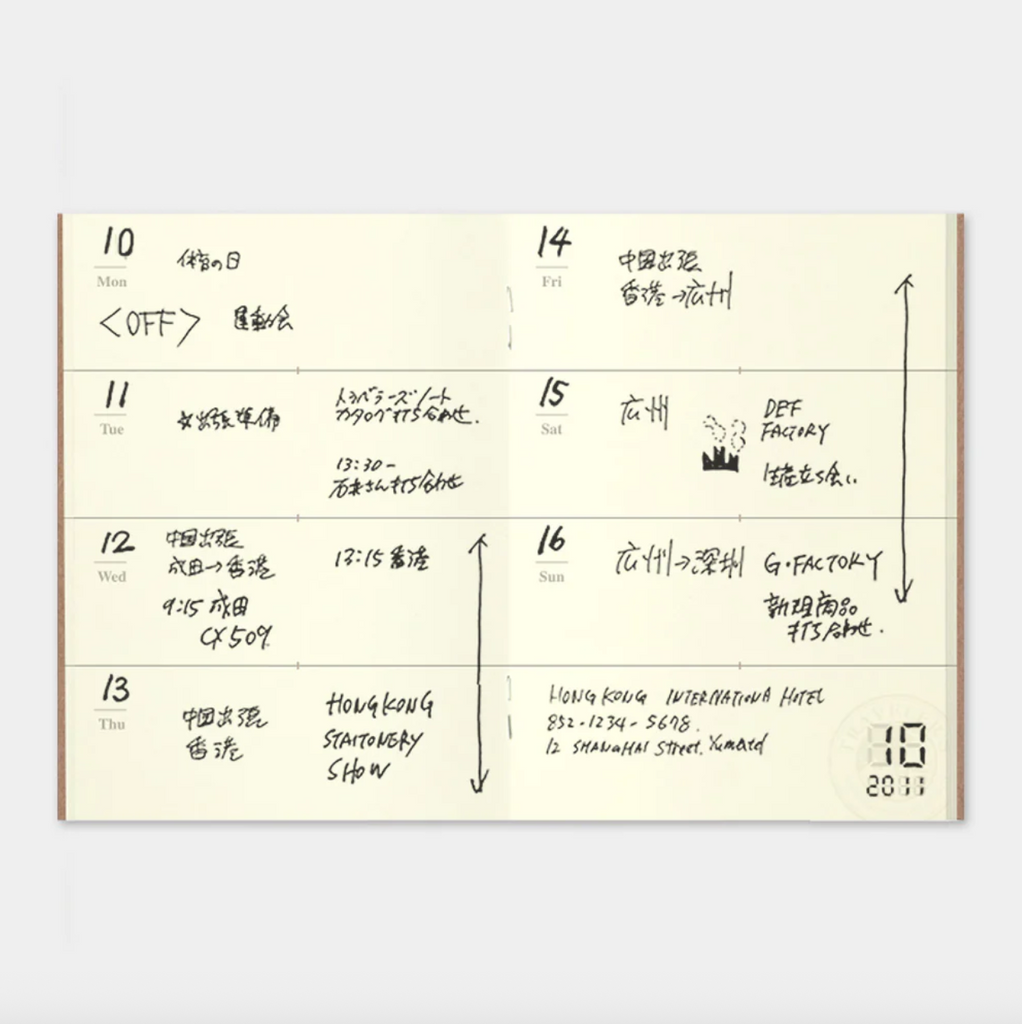 10
Mon
体育の日
<OFF> 運動会
11
Tue
出張準備
トラベラーズノート
カタログ打ち合わせ.
13:30-
さん打ち合わせ
12
Wed
中国出張
成田→香港
9:15 成田
CX 509.
13:15 香港
13
Thu
中国出張
香港
HONG KONG
STAITONERY
SHOW
14
Fri
中国出張
香港→広州
15
Sat
広州
DEF
FACTORY
生産立ち会い
16
Sun
広州→深圳
G・FACTORY
新規商品
打ち合わせ.
HONG KONG INTERNATIONA HOTEL
852-1234-5678.
12 SHANGHAI Street.
10
2011